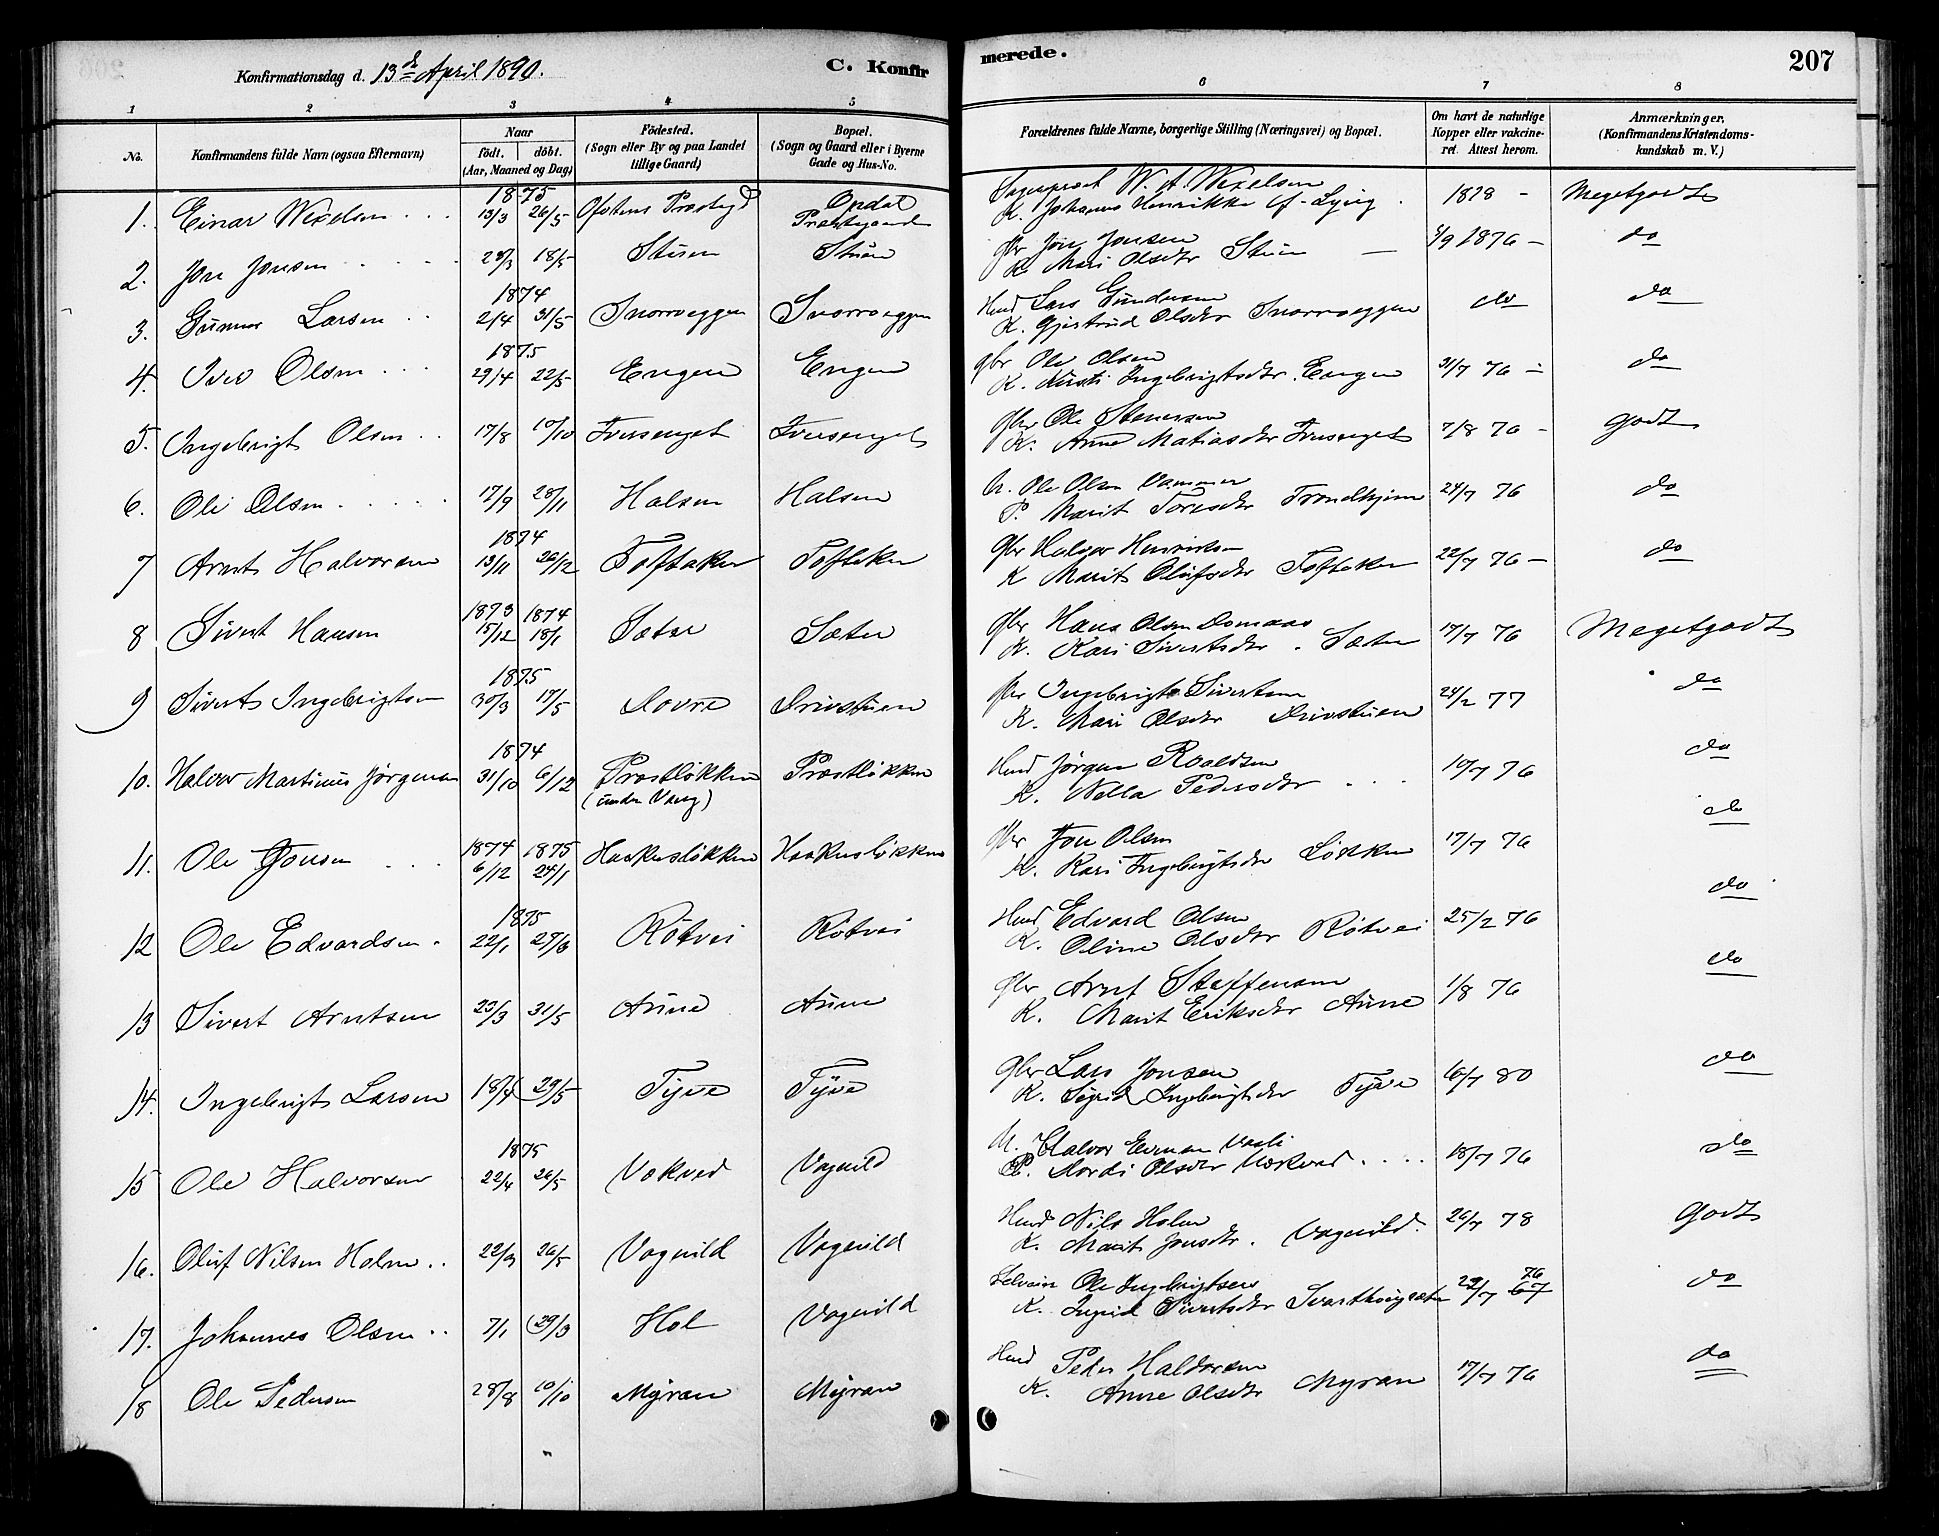 Konfirmationsdag d. 13de April 1890. C. Konfir
merede. 207
1 2 3 4 5 6 7 8
No. Konfirmandens fulde Navn (ogsaa Efternavn) Naar født. døbt. (Aar, Maaned og Dag) Födested. (Sogn eller By og paa Landet tillige Gaard) Bopæl. (Sogn og Gaard eller i Byerne Gade og Hus-No.
Forældrenes fulde Navne, borgerlige Stilling (Næringsvei) og Bopæl. Om havt de naturlige Kopper eller vakcineret. Attest herom. Anmærkninger. (Konfirmandens Kristendomskundskab m. V.)
1875
1. Einar Wexelsen 13/3 26/5 Ofotens Præstegd Opdal Præstegaard
Sogneprest W. A. Wexelsen
K. Johanna Henrikke 1878 - Megetgodt
2. Jon Jonsen 18/5 Stuen Stuen
Gbr Jon Jonsen
K. Mari Olsdtr Stuen 1876 - do
1874
3. Gunnar Larsen 2/4 31/5 Snorroeggen Snorroeggen
Husmd Lars Gundersen
K. Gjertrud Olsdtr Snorroeggen do do
1875
4. Iver Olsen 29/4 22/5 Engen Engen
gbr Ole Olsen
K. Kirsti Ingebrigtsdtr. Engen 31/7 76 - do
5. Ingebrigt Olsen 17/8 10/10 Iversenget Iversenget
Gbr Ole Stenersen
K. Anne Matiasdtr Iversenget 7/8 76 - godt
6. Ole Olsen 17/9 28/11 Halsen Halsen
U. Ole Olsen Vammer
P. Marit Toresdtr Trondhjem 24/7 76 do
1874
7 Arnt Halvorsen 13/11 26/12 Toftaker Toftaker
Gbr Halvor Henriksen
K Marit Olufsdtr Toftaker 22/7 76 - do
1873 1874
8 Sivert Hansen 15/12 18/1 Sæter Sæter
Gbr Hans Olsen Domaas
K. Kari Sivertsdtr. Sæter 17/7 76 Megetgodt
1875
9 Sivert Ingebrigtsen 30/3 17/5 Dovre Drivstuen
Gbr Ingebrigt Sivertsen
K. Mari Olsdtr Drivstuen 24/2 77 do
1874
10. Halvor Martinus Jørgensen 31/10 6/12 Præstløkken (under Vang) Præstløkken
Husmd Jørgen Roaldsen
K. Nella Pedersdtr 10/7 76 do
1874 1875
11. Ole Jonsen 6/12 24/1 Haakusløkken Haakusløkken
Gbr Jon Olsen
K. Kari Ingebrigtsdtr Løkken 17/7 76 do
1875
12 Ole Edvardsen 22/1 Røtvei Røtvei
Husmd Edvard Olsen
K. Oline Olsdtr Røtvei 25/2 76 do
13 Sivert Arntsen 23/3 31/5 Aune Aune
Gbr Arnt Steffensen
K. Marit Eriksdtr Aune 1/8 76 do
14. Ingebrigt Larsen 18/4 29/5 Tyve Tyve
Gbr Lars Jonsen
K. Sigrid Ingebrigtsdtr Tyve 80 do
1875
15 Ole Halvorsen 22/4 26/5 Vokved Vognild
U. Halvor Vaali
P. Dordi Olsdtr 18/7 76 do
16. Oluf Nilsen Holm 26/5 Vognild Vognild
Husmd Nils Holm
K. Marit Jonsdtr. Vognild. 26/7 78 Godt
17. Johannes Olsen 7/1 29/3 Hol Vognild
Selveier Ole Ingebrigtsen
K. Ingrid Sivertsdtr 29/7 76 67 do
18 Ole Pedersen 28/8 10/10 Myran Myran
Husmd Peder Haldorsen
K. Anne Olsdtr Myran 17/7 76 do